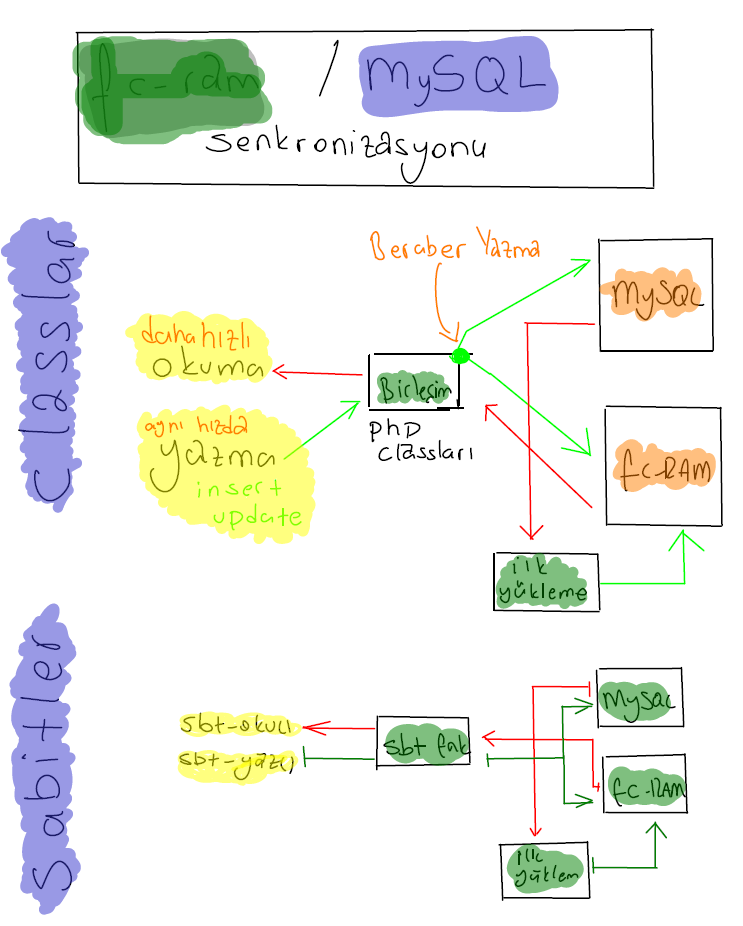 fc-ram / MySQL
senkronizasyonu
Classlar
Beraber Yazma
MySQL
daha hızlı
okuma
Birleşim
PhD
classları
aynı hızda
yazma
insert
update
fc-RAM
ilk
yükleme
Sabitler
MySQL
sbt-okucı
sbt-yazıcı
sbt fak
fc-RAM
ilk
yüklem